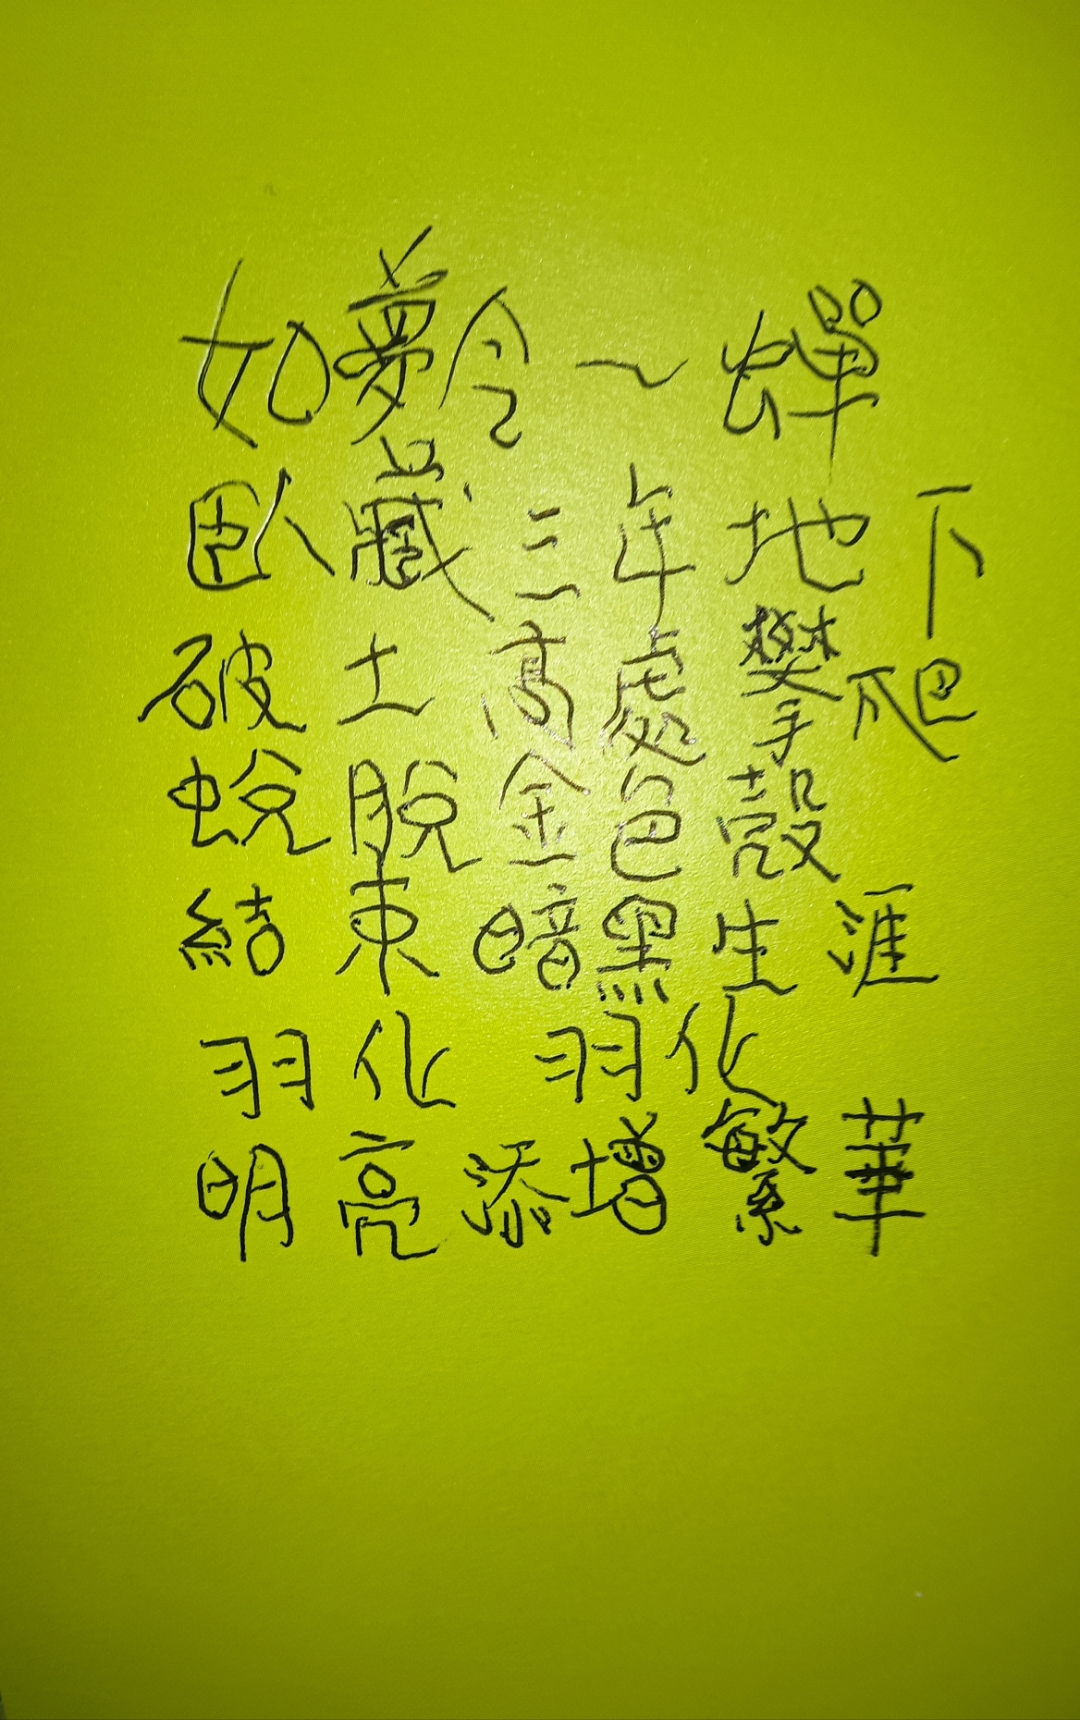 如夢令~蟬
臥藏三年地下
破土高處攀爬
蛻脫金色殼
結束暗黑生涯
羽化 羽化
明亮添增繁華